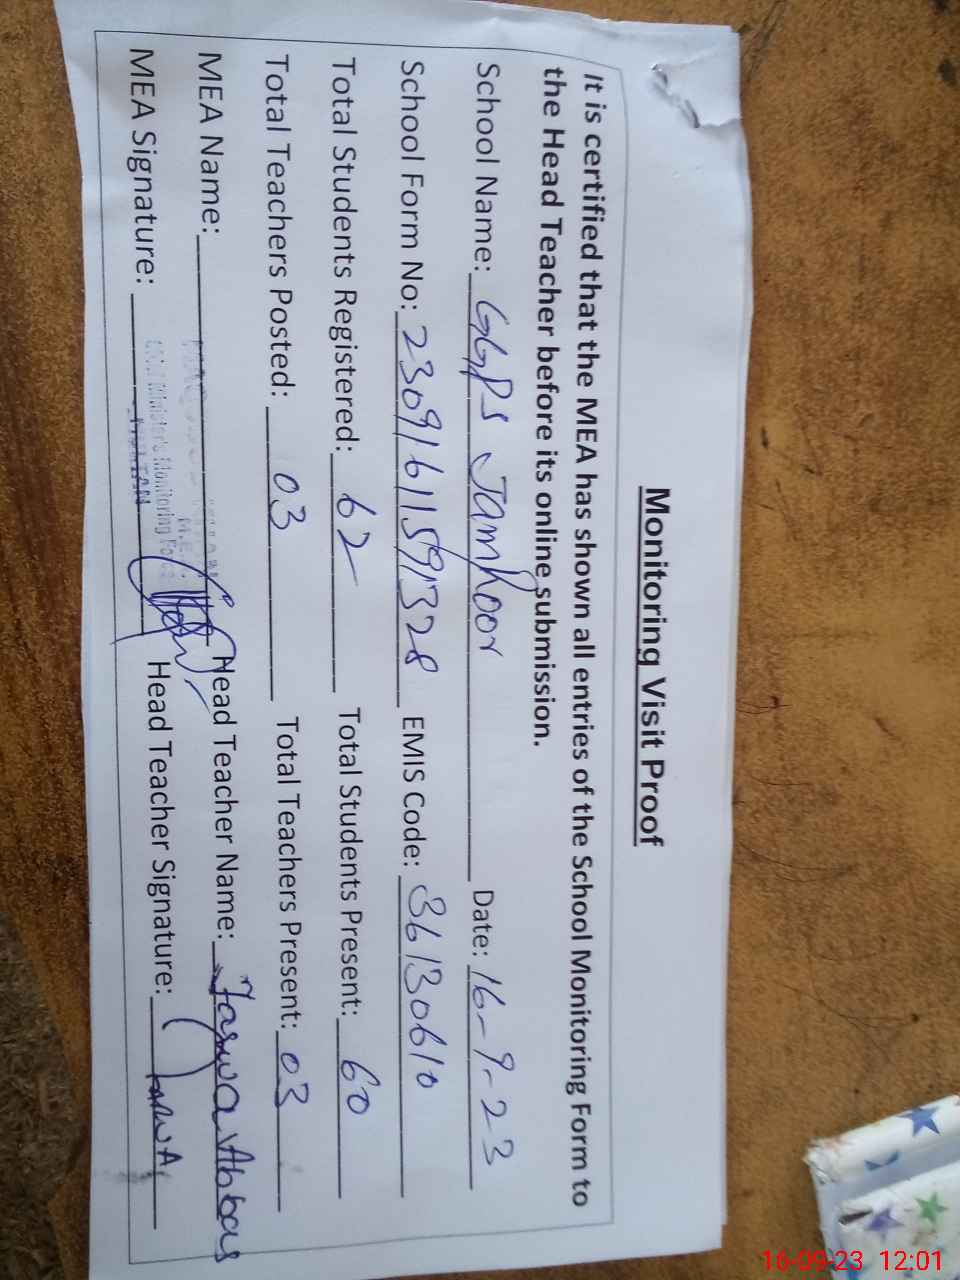 Monitoring Visit Proof
It is certified that the MEA has shown all entries of the School Monitoring Form to
the Head Teacher before its online submission.
School Name: GGPS Jamhoor Date: 16-9-23
School Form No: 23091611591328 EMIS Code: 36130610
Total Students Registered: 62 Total Students Present: 60
Total Teachers Posted: 03 Total Teachers Present: 03
MEA Name: Head Teacher Name: Abbas
MEA Signature: Head Teacher Signature:
Minister's Monitoring Force
MULTAN
16-09-23 12:01